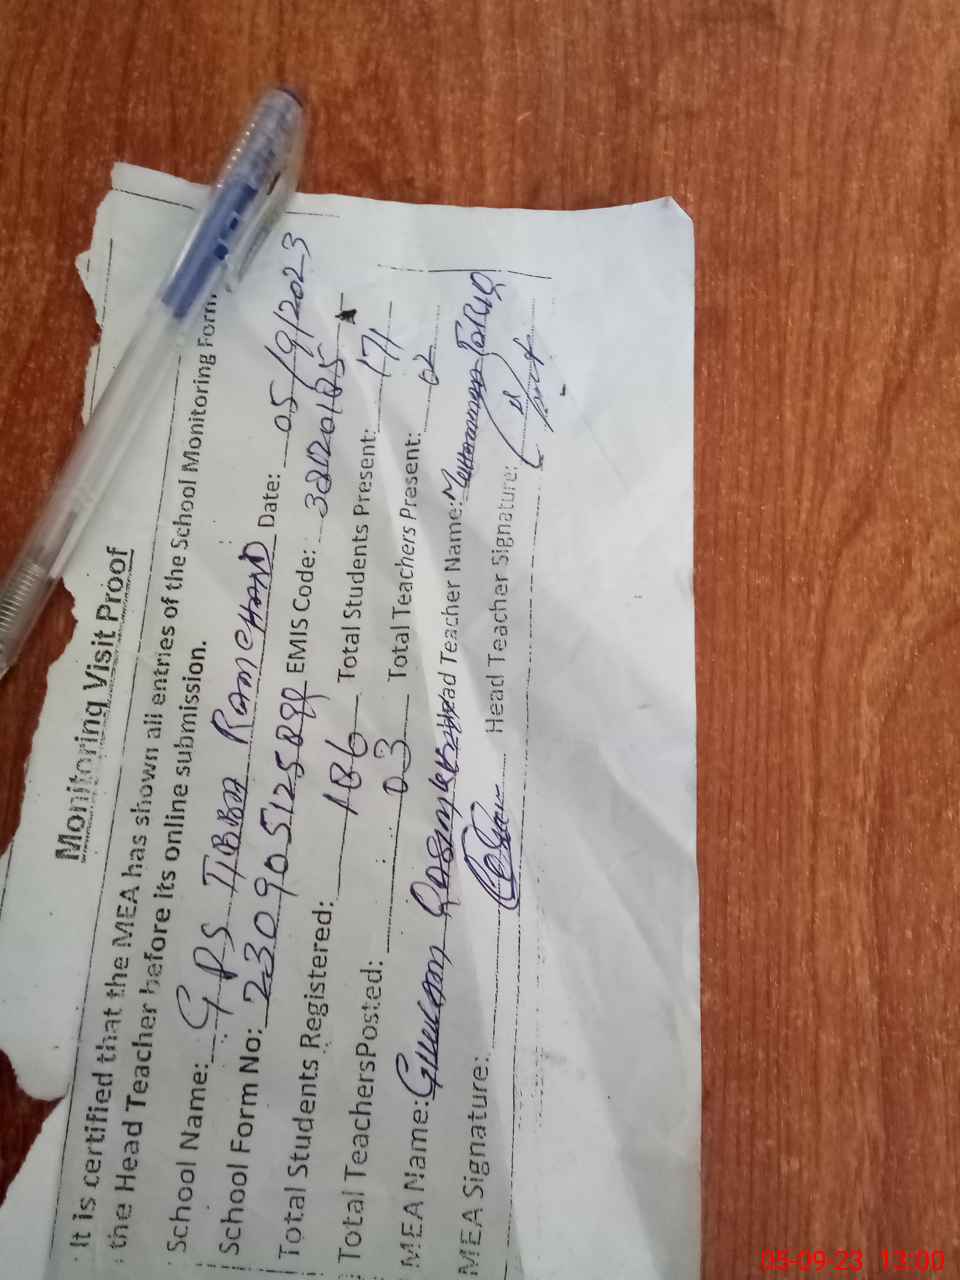 Monitoring Visit Proof
It is certified that the MEA has shown all entries of the School Monitoring Form
the Head Teacher before its online submission.
School Name: GPS TIBBA RAMCHAND Date: 05/9/2023
School Form No: 230905125898 EMIS Code: 32120185
Total Students Registered: 186 Total Students Present: 171
Total TeachersPosted: 03 Total Teachers Present: 02
MEA Name: Ghulam Head Teacher Name: Muhammad Tariq
MEA Signature: Head Teacher Signature:
05-09-23 13:00